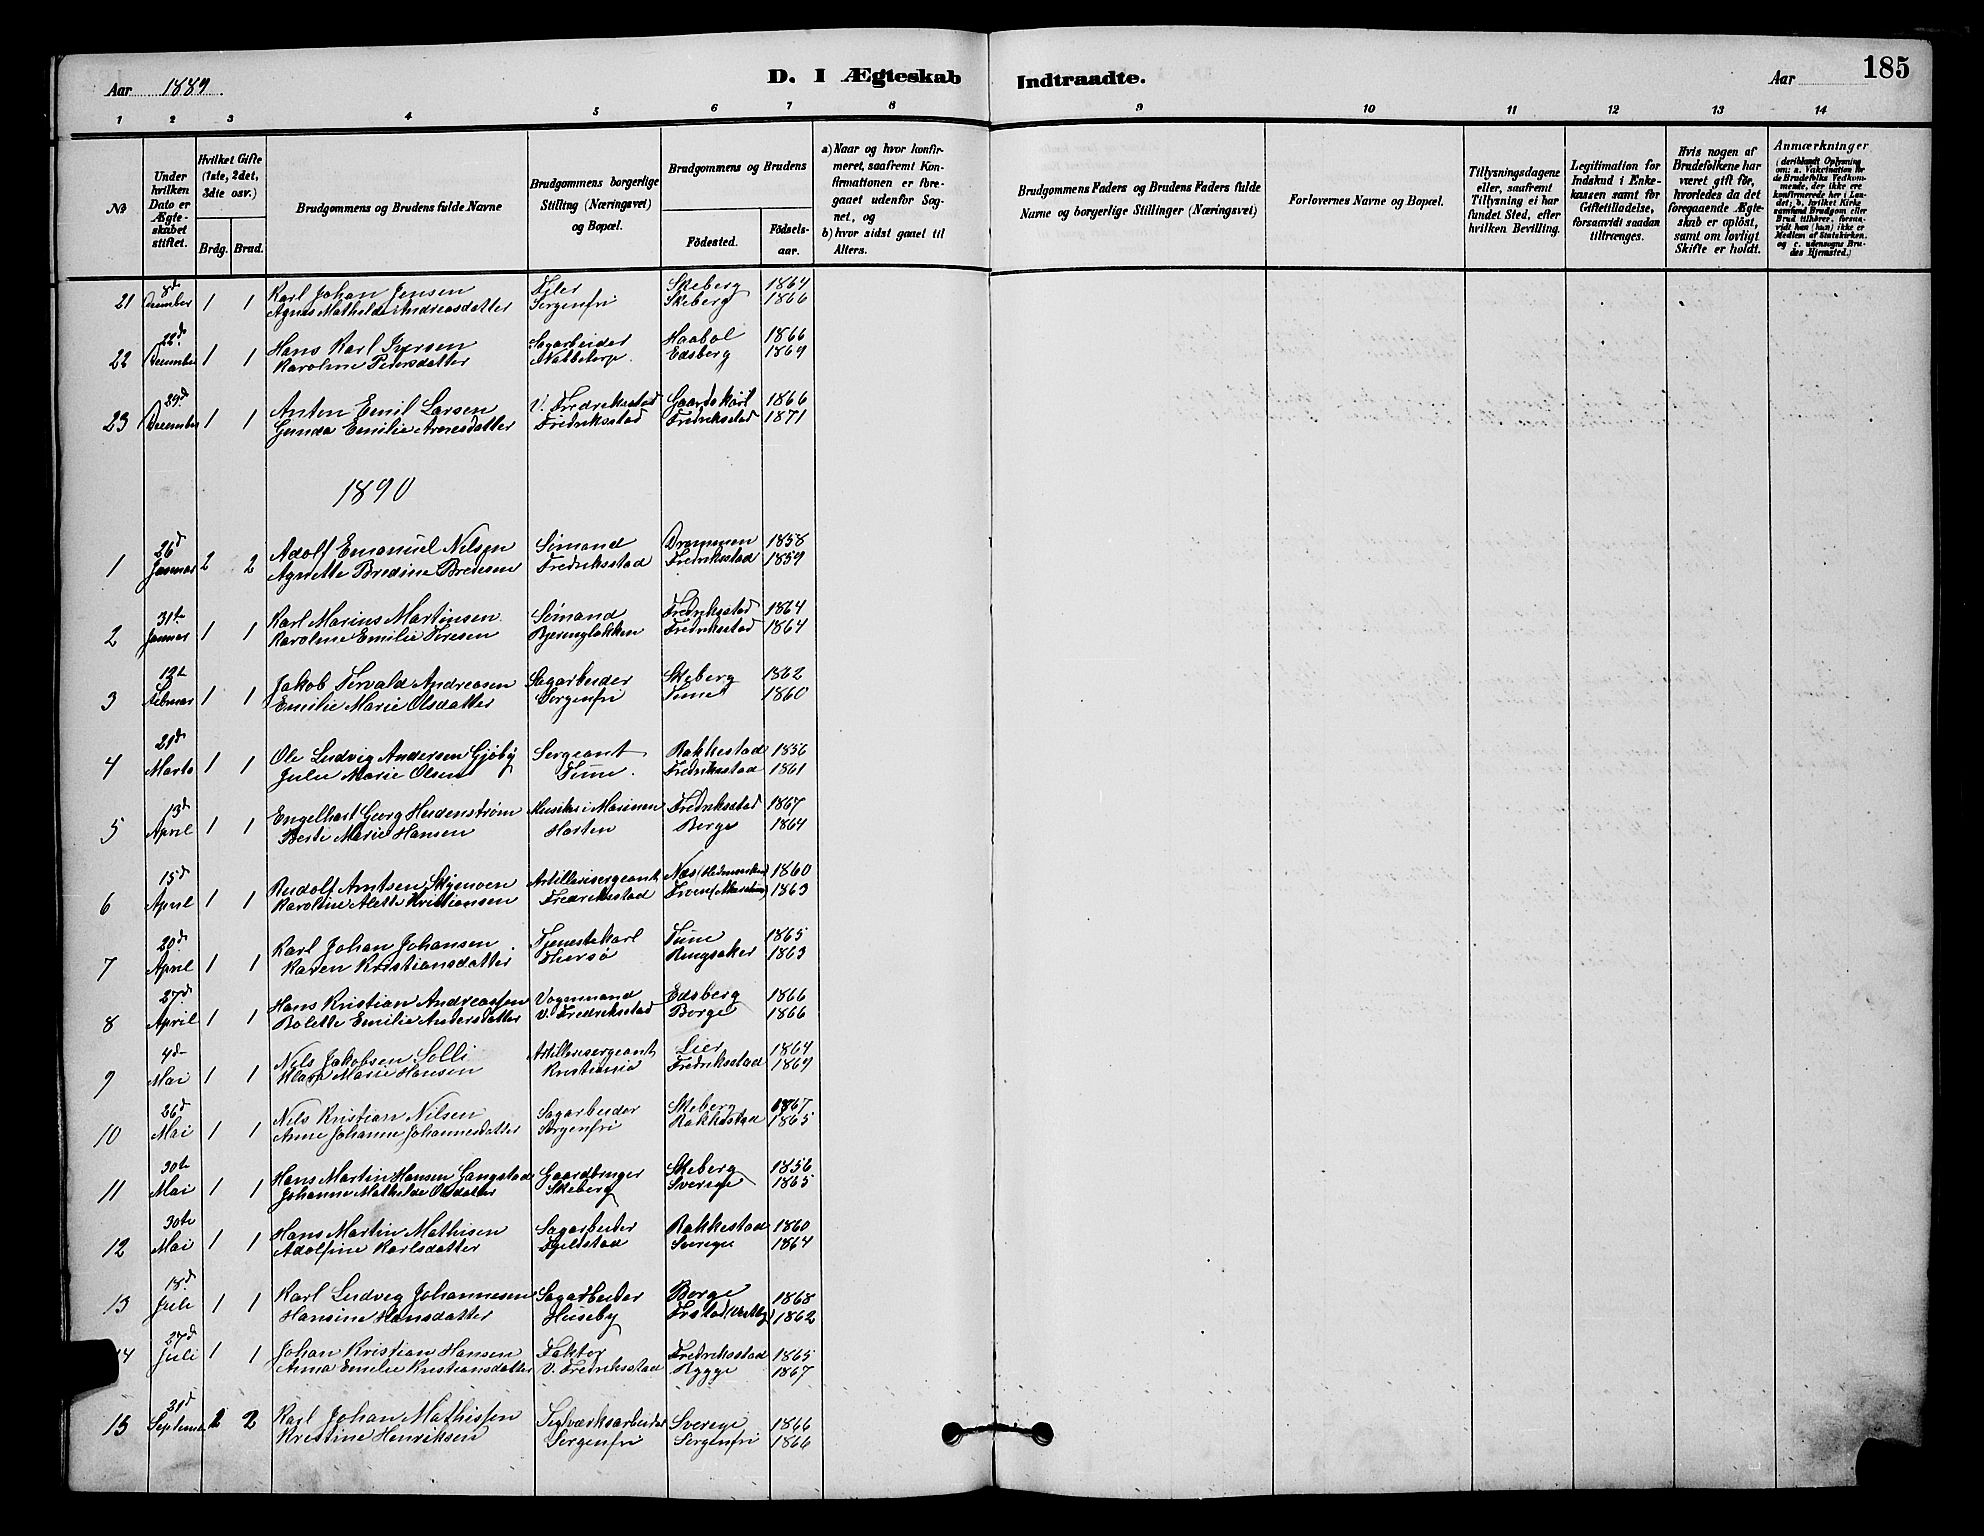 Aar 1889.
D. I Ægteskab Indtraadte.
Aar
185
1 2 3 4 5 6 7 8 9 10 11 12 13 14
№
Under hvilken Dato er Ægteskabet stiftet.
Hvilket Gifte (1ste, 2det, 3die osv.)
Brdg. Brud.
Brudgommens og Brudens fulde Navne
Brudgommens borgerlige Stilling (Næringsvei) og Bopæl.
Brudgommens og Brudens
Födested. Födsels-aar.
a) Naar og hvor konfirmeret, saafremt Konfirmationen er foregaaet udenfor Sognet, og
b) hvor sidst gaaet til Alters.
Brudgommens Faders og Brudens Faders fulde Navne og borgerlige Stillinger (Næringsvei)
Forlovernes Navne og Bopæl.
Tillysningsdagene eller, saafremt Tillysning ei har fundet Sted, efter hvilken Bevilling.
Legitimation for Indskud i Enkekassen samt for Giftetilladelse, forsaavidt saadan tiltrænges.
Hvis nogen af Brudefolkene har været gift för, hvorledes da det foregaaende Ægteskab er oplöst, samt om lovligt Skifte er holdt.
Anmærkninger
(deriblandt Oplysning om: a. Vakcination for de Brudefolks Vedkommende, der ikke ere konfirmerede her i Landet; b. hvilket Kirkesamfund Brudgom eller Brud tilhörer, forsaavidt han (hun) ikke er Medlem af Statskirken, og c. udensogns Brudes Hjemsted.)
21 8d December 1 1 Karl Johan Jensen Filer Skeberg 1864
Agnes Mathilde Andreasdatter Sorgenfri Skeberg 1866
22 22d December 1 1 Hans Karl Iversen Sagarbeider Haabøl 1866
Karoline Pedersdatter Nabbetorp. Edsberg 1869
23 29d December 1 1 Anton Emil Larsen V. Fredriksstad 1866
Gunda Emilie Arnesdatter Fredriksstad Fredriksstad 1871
1890
1 26d Januar 2 2 Adolf Emanuel Nilsen Sömand Drammen 1858
Agnette Bredine Bredesen Fredriksstad Fredriksstad 1859
2 31te Januar 1 1 Karl Marius Martinsen Sömand Fredriksstad 1864
Karoline Emilie Iversen Bjerengløkken Fredriksstad 1864
3 12te Februar 1 1 Jakob Torvald Andreasen Sagarbeider Skeberg 1862
Emilie Marie Olsdatter Sorgenfri Tune 1860
4 21d Marts 1 1 Ole Ludvig Andersen Gjøby Sergeant Rakkestad 1856
Julie Marie Olsen Tune. Fredriksstad 1861
5 13d April 1 1 Engelhart Georg Heidenstrøm Musiker i Marinen Fredriksstad 1867
Berte Marie Hansen Horten Borge 1864
6 15d April 1 1 Rudolf Arntsen Skjenven Artillerisergeant Næs (Hedemarken) 1860
Karoline Alette Kristiansen Fredriksstad 1863
7 20d April 1 1 Karl Johan Johansen Tjenestekarl Tune 1865
Karen Kristiansdatter Thorsø Ringsaker 1863
8 27d April 1 1 Hans Kristian Andreassen Vognmand Edsberg 1866
Bolette Emilie Andersdatter V. Fredriksstad Borge 1866
9 4de Mai 1 1 Nils Jakobsen Solli Artillerisergeant Lier 1864
Klara Marie Hansen Kristiania Fredriksstad 1869
10 26d Mai 1 1 Nils Kristian Nilsen Sagarbeider Skeberg 1867
Anne Johanne Johannesdatter Sorgenfri Rakkestad 1865
11 30te Mai 1 1 Hans Martin Hansen Gangstad Gaardbruger Skeberg 1856
Johanne Mathilde Olsdatter Skeberg Sverige 1865
12 30te Mai 1 1 Hans Martin Mathisen Sagarbeider Rakkestad 1860
Adolfine Karlsdatter Fjeldstad Sverige 1864
13 18d Juli 1 1 Karl Ludvig Johannesen Sagarbeider Borge 1868
Hansine Hansdatter Huseby Frstad (Vestby) 1862
14 27d Juli 1 1 Johan Kristian Hansen Faktor Fredriksstad 1865
Anna Emilie Kristiansdatter V. Fredriksstad Rygge 1867
15 21d Septembr 2 2 Karl Johan Mathissen Teglværksarbeider Sverige 1866
Kristine Henriksen Sorgenfri Sorgenfri 1866